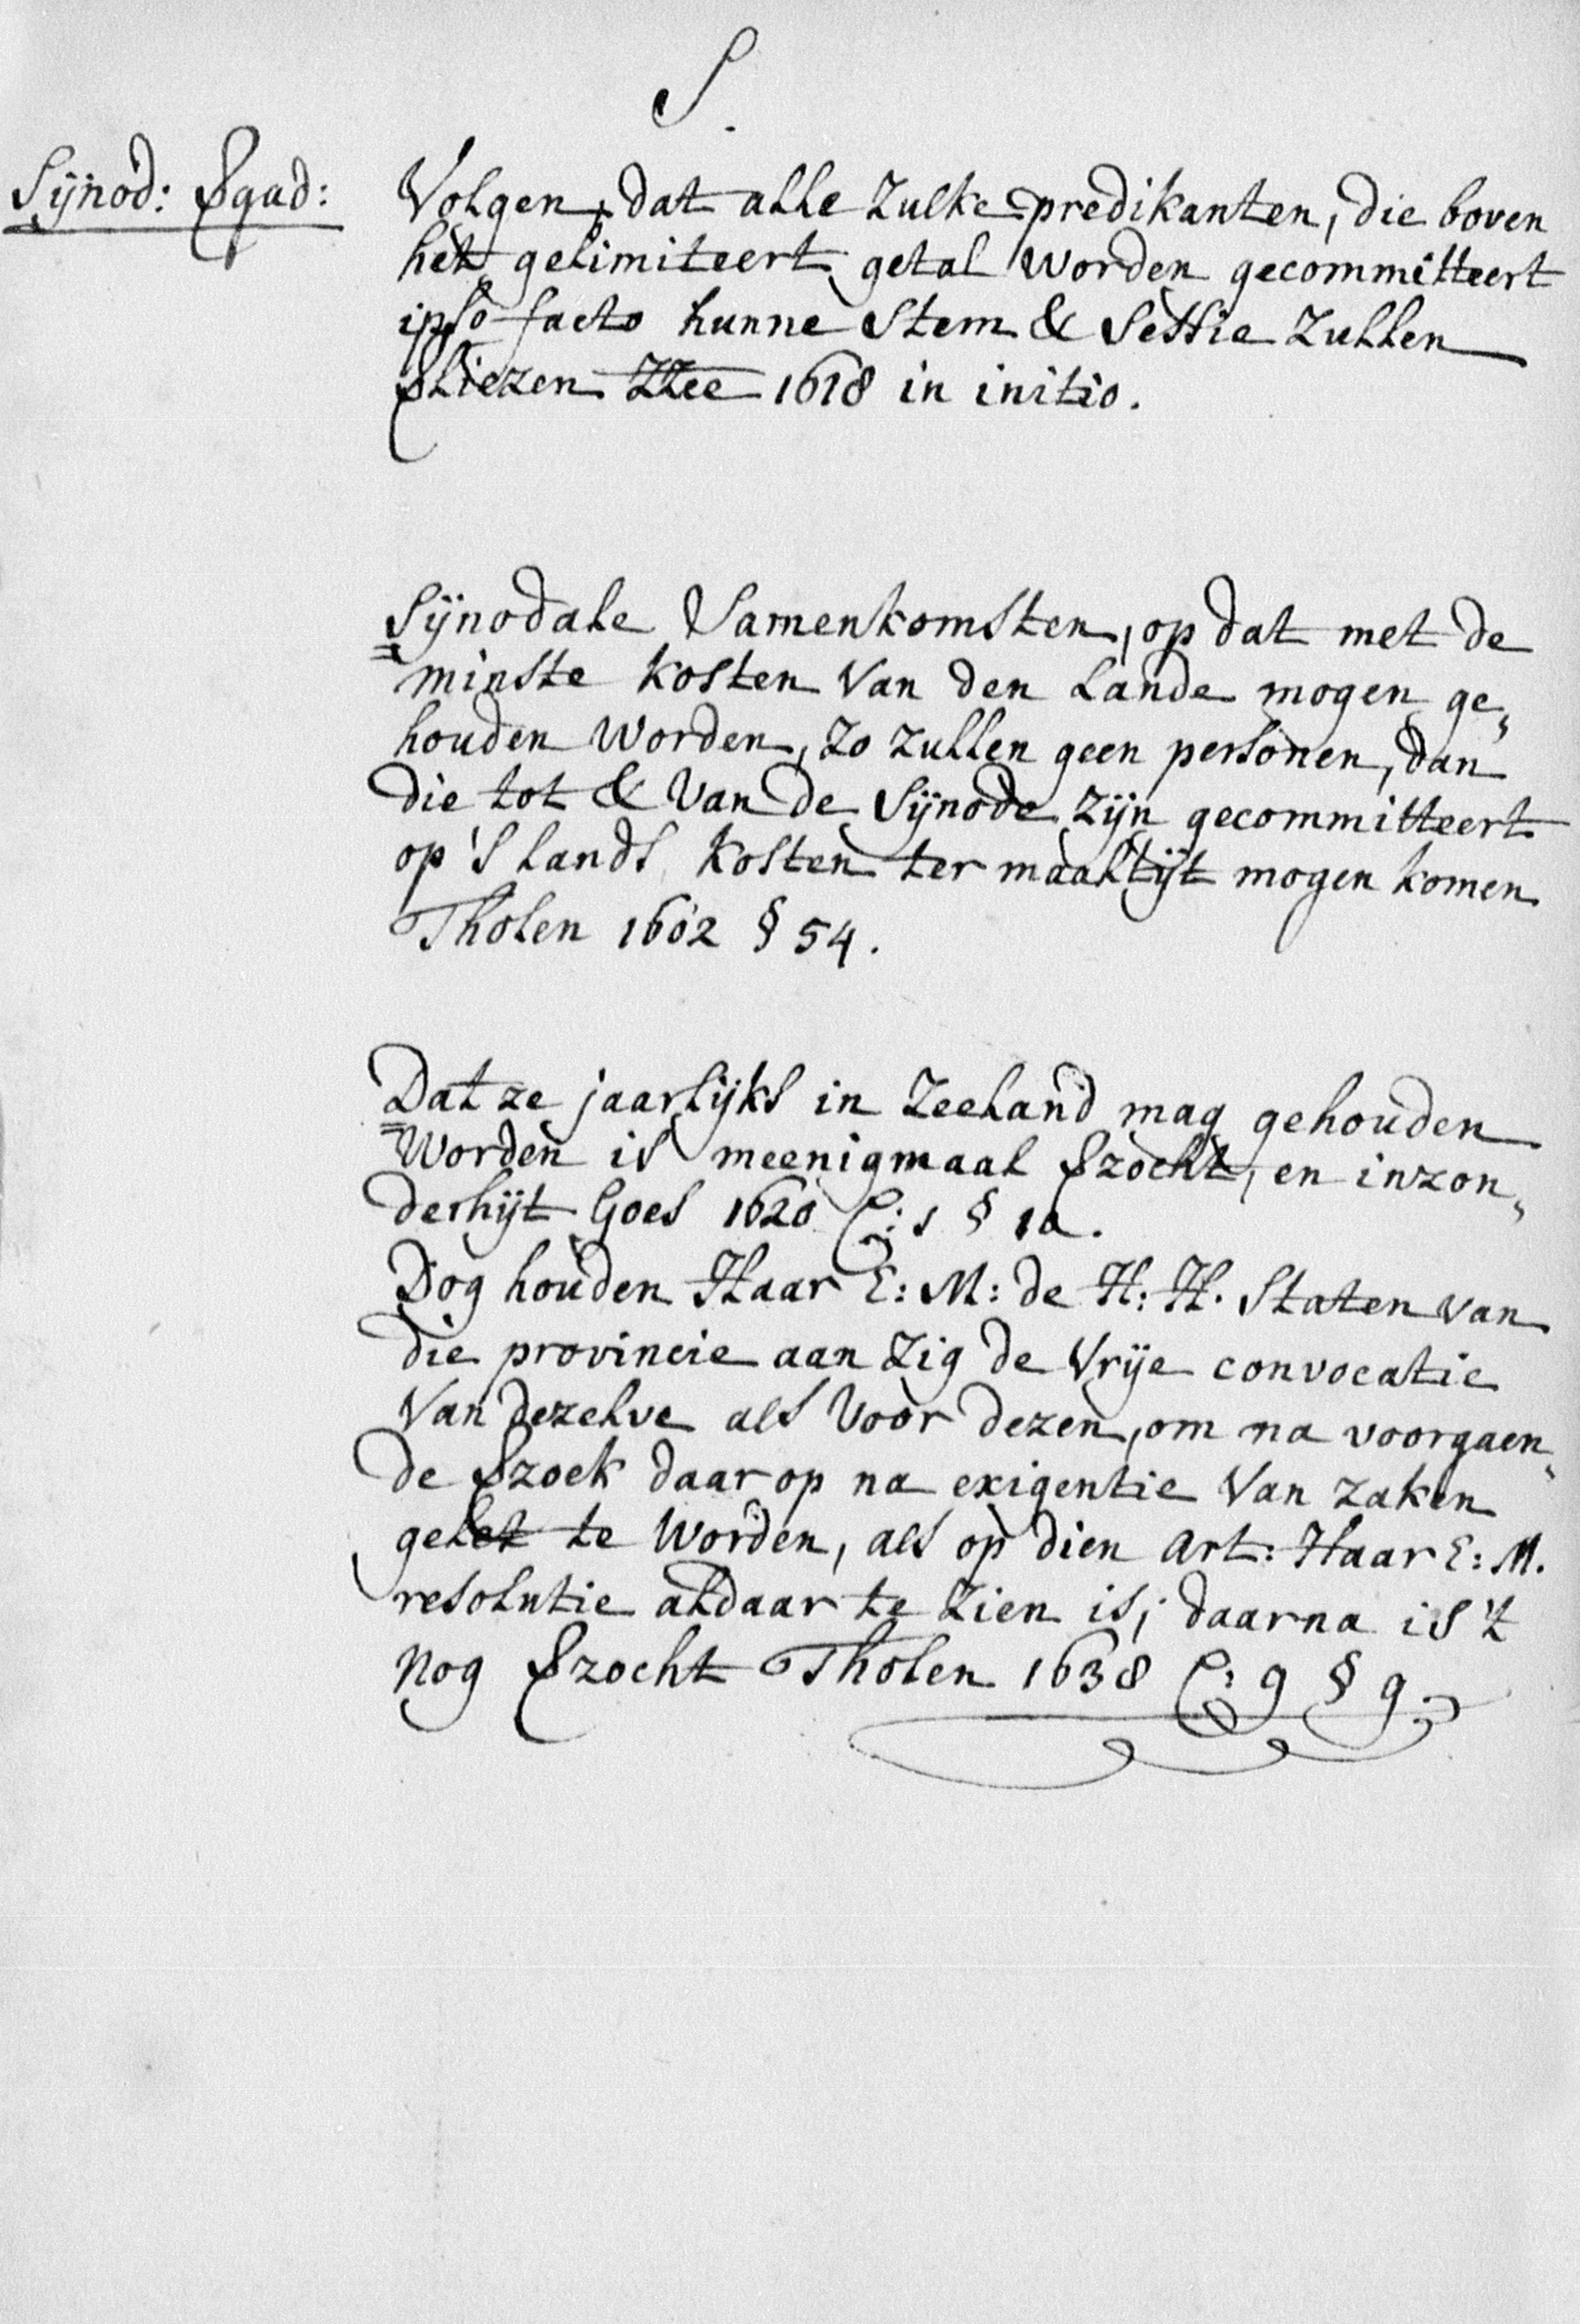 S.
Sijnod: Vgad:
Volgen, dat alle zulke predikanten, die boven
het gelimiteert getal worden gecommitteert
ipso facto hunne stem & Sessie zullen
Vliezen Zzee 1618 in initio.
Sijnodale Samenkomsten, op dat met de
minste kosten van den Lande mogen ge„
houden worden, zo zullen geen personen, dan
die tot & van de Sijnode zijn gecommitteert
op 's Lands kosten ter maaltijt mogen komen
Tholen 1602 § 54.
Dat ze jaarlijks in Zeeland mag gehouden
worden is meenigmaal Vzocht, en inzon„
derhijt Goes 1620 C: 1 § 1a.
Dog houden Haar E: M: de H: H. Staten van
die provincie aan zig de vrije convocatie
van dezelve als voor dezen, om na voorgaen„
de Vzoek daar op na exigentie van zaken
gelet te worden, als op dien Art: Haar E: M.
resolutie aldaar te zien is; daarna is 't
nog Vzocht Tholen 1638 C: 9 § 9.